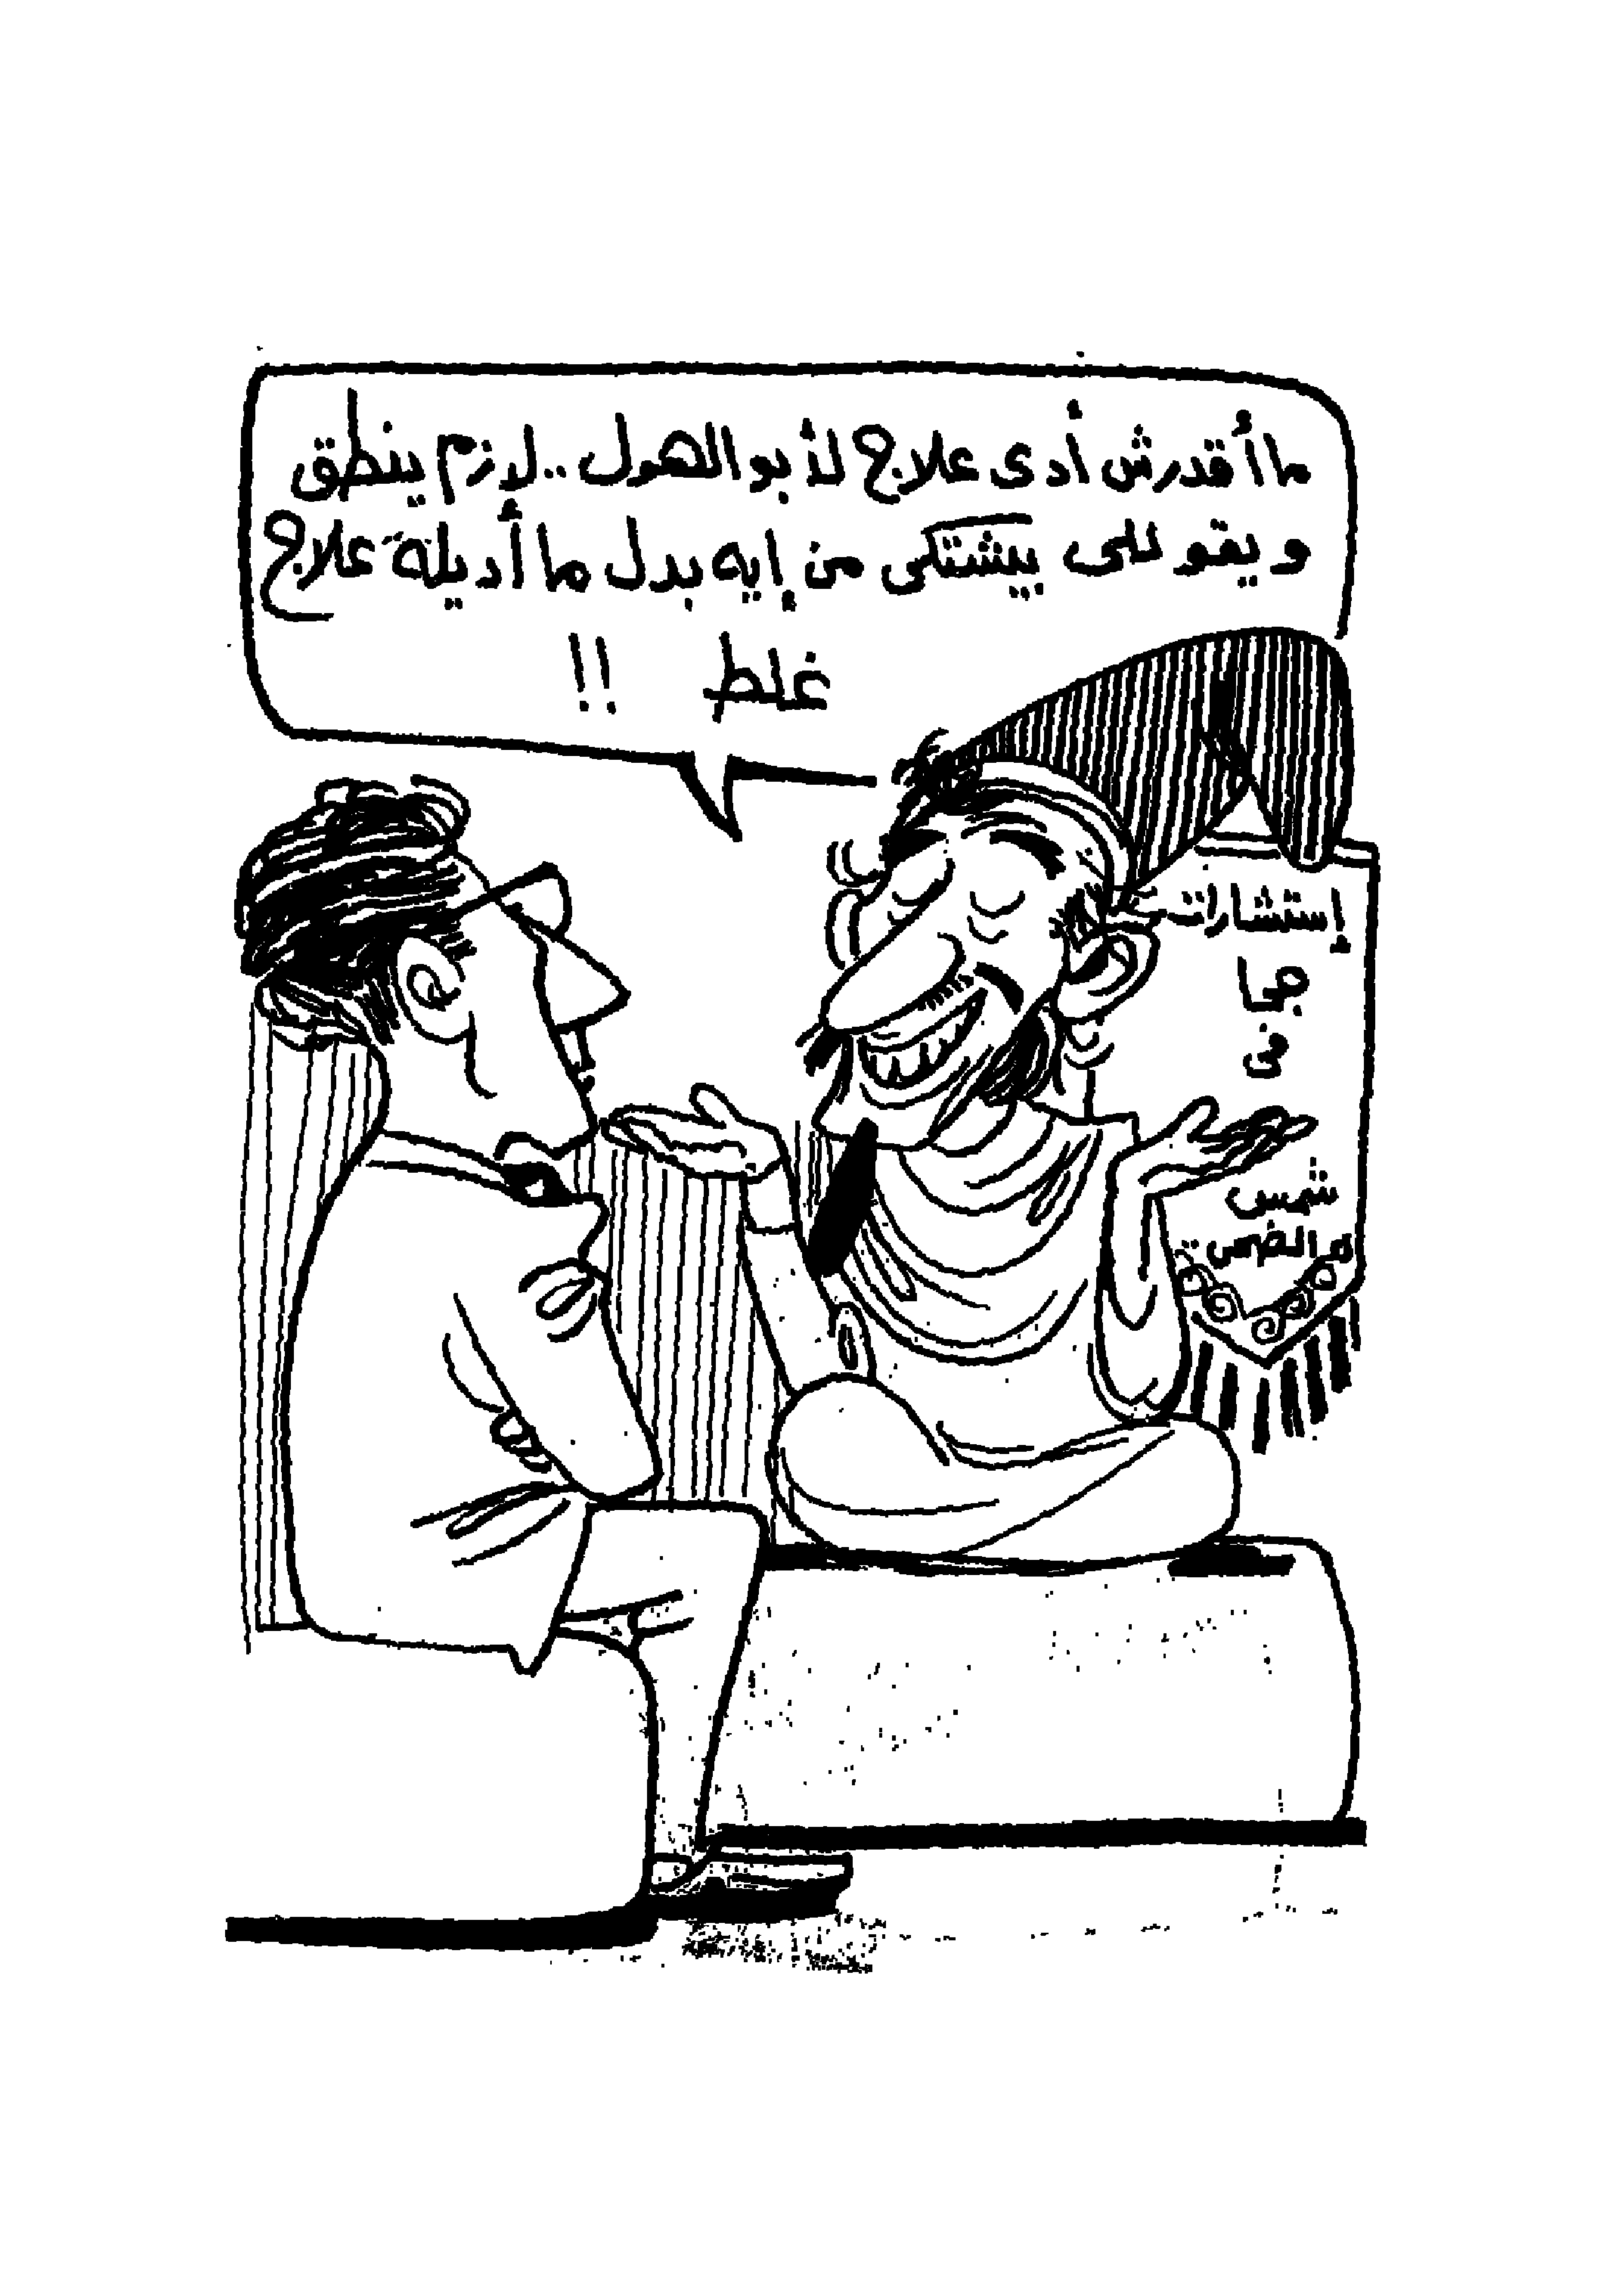 ما أقدرش أدى علاج لأبو الهول .. لازم ينطق
ويقوللى بيشتكى من إيه بدل ما أديله علاج
غلط !!
إستشارات
جحا
فى
شمس